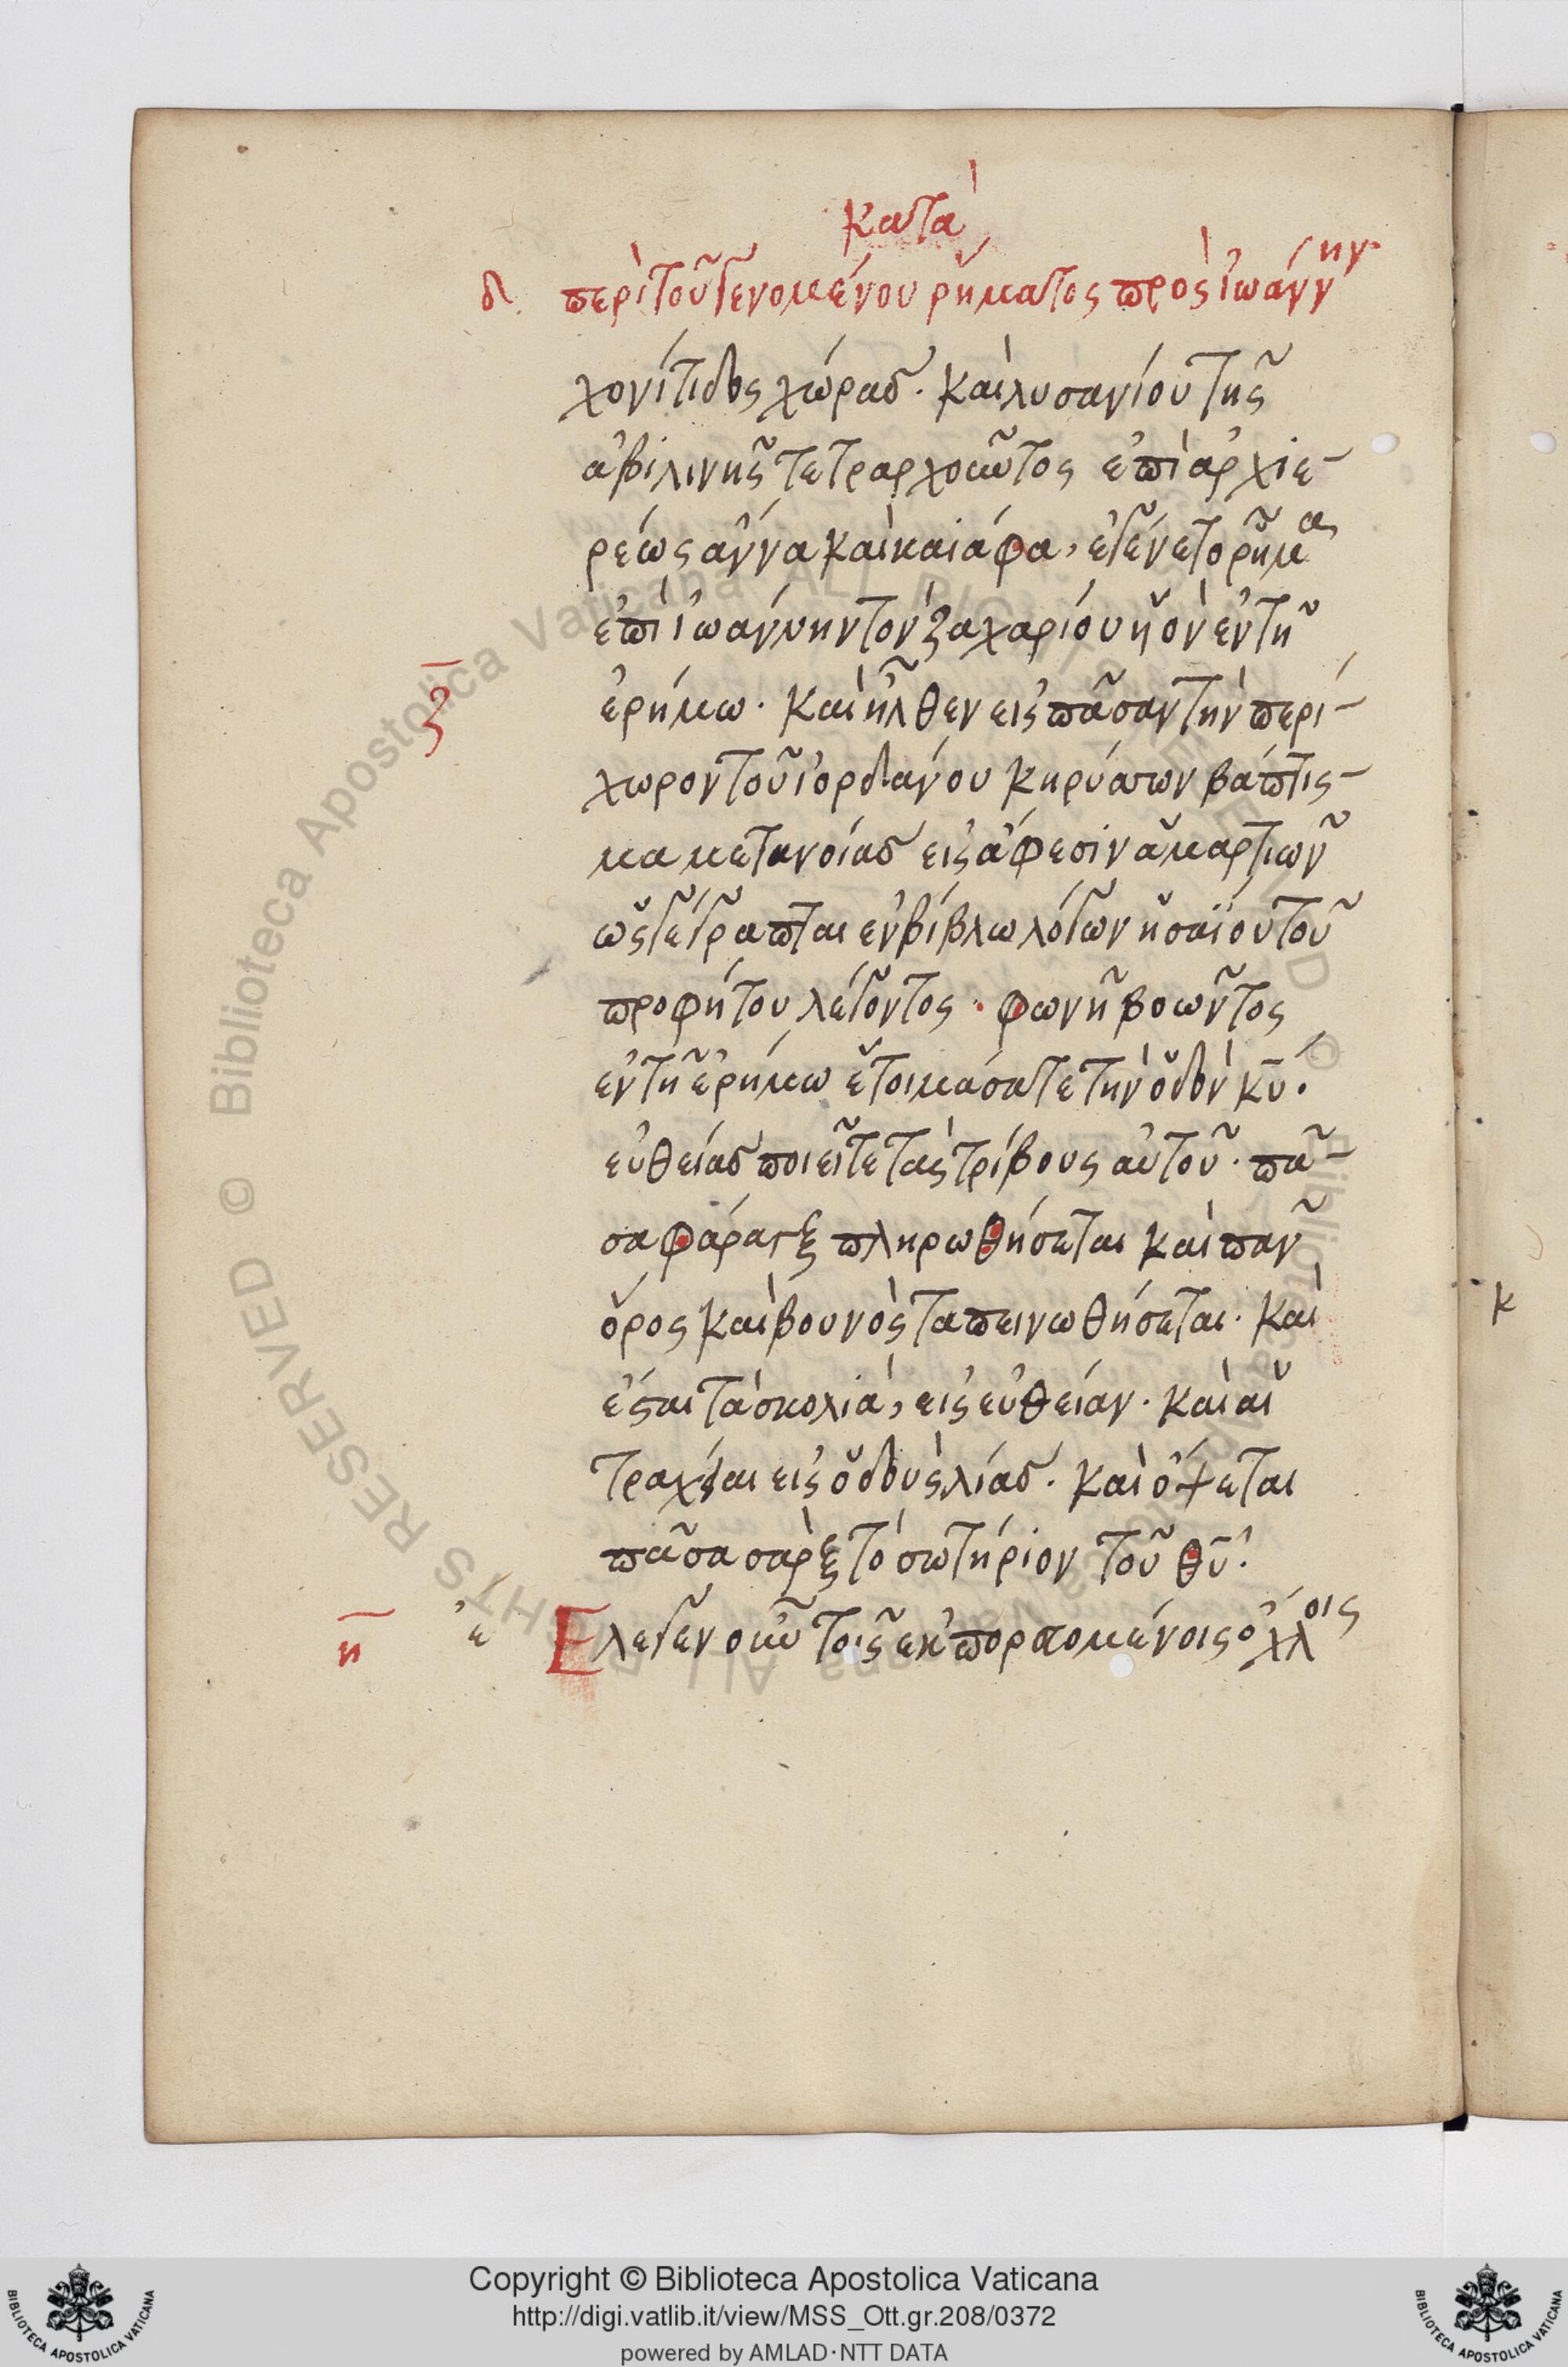 κατὰ
δ περὶ τοῦ γενομένου ῥήματος πρὸς ἰωάννην
χονίτιδος χώρας. καὶ λυσανίου τῆς
ἀβιλινῆς τετραρχοῦντος ἐπὶ ἀρχιε-
ρέως ἄννα καὶ καϊάφα, ἐγένετο ῥῆμα
ἐπὶ ἰωάννην τὸν ζαχαρίου ὑὸν ἐν τῆ
ζ ἐρήμω. καὶ ἦλθεν εἰς πᾶσαν τὴν περί-
χωρον τοῦ ἰορδάνου κηρύσσων βάπτισ-
μα μετανοίας εἰς ἄφεσιν ἁμαρτιῶν
ὡς γέγραπται ἐν βίβλω λόγων ἡσαΐου τοῦ
προφήτου λέγοντος. φωνῆ βοῶντος
ἐν τῆ ἐρήμω ἑτοιμάσατε τὴν ὁδὸν κ̅υ̅.
εὐθείας ποιεῖτε τὰς τρίβους αὐτοῦ. πᾶ-
σα φάραγξ πληρωθήσεται καὶ παν
ὄρος καὶ βουνὸς ταπεινωθήσεται. καὶ
ἔσται τὰ σκολιὰ, εἰς εὐθείαν. καὶ αἱ
τραχεῖαι εἰς ὁδοὺς λίας. καὶ ὄψεται
πᾶσα σὰρξ τὸ σωτήριον τοῦ θ̅υ̅.
η ε Ἔλεγεν οὖν τοῖς ἐκπορευομένοις ὄχλοις
κ
Copyright © Biblioteca Apostolica Vaticana
http://digi.vatlib.it/view/MSS_Ott.gr.208/0372
powered by AMLAD·NTT DATA
BIBLIOTECA APOSTOLICA VATICANA
BIBLIOTECA APOSTOLICA VATICANA
© Biblioteca Apostolica Vaticana ALL RIGHTS RESERVED